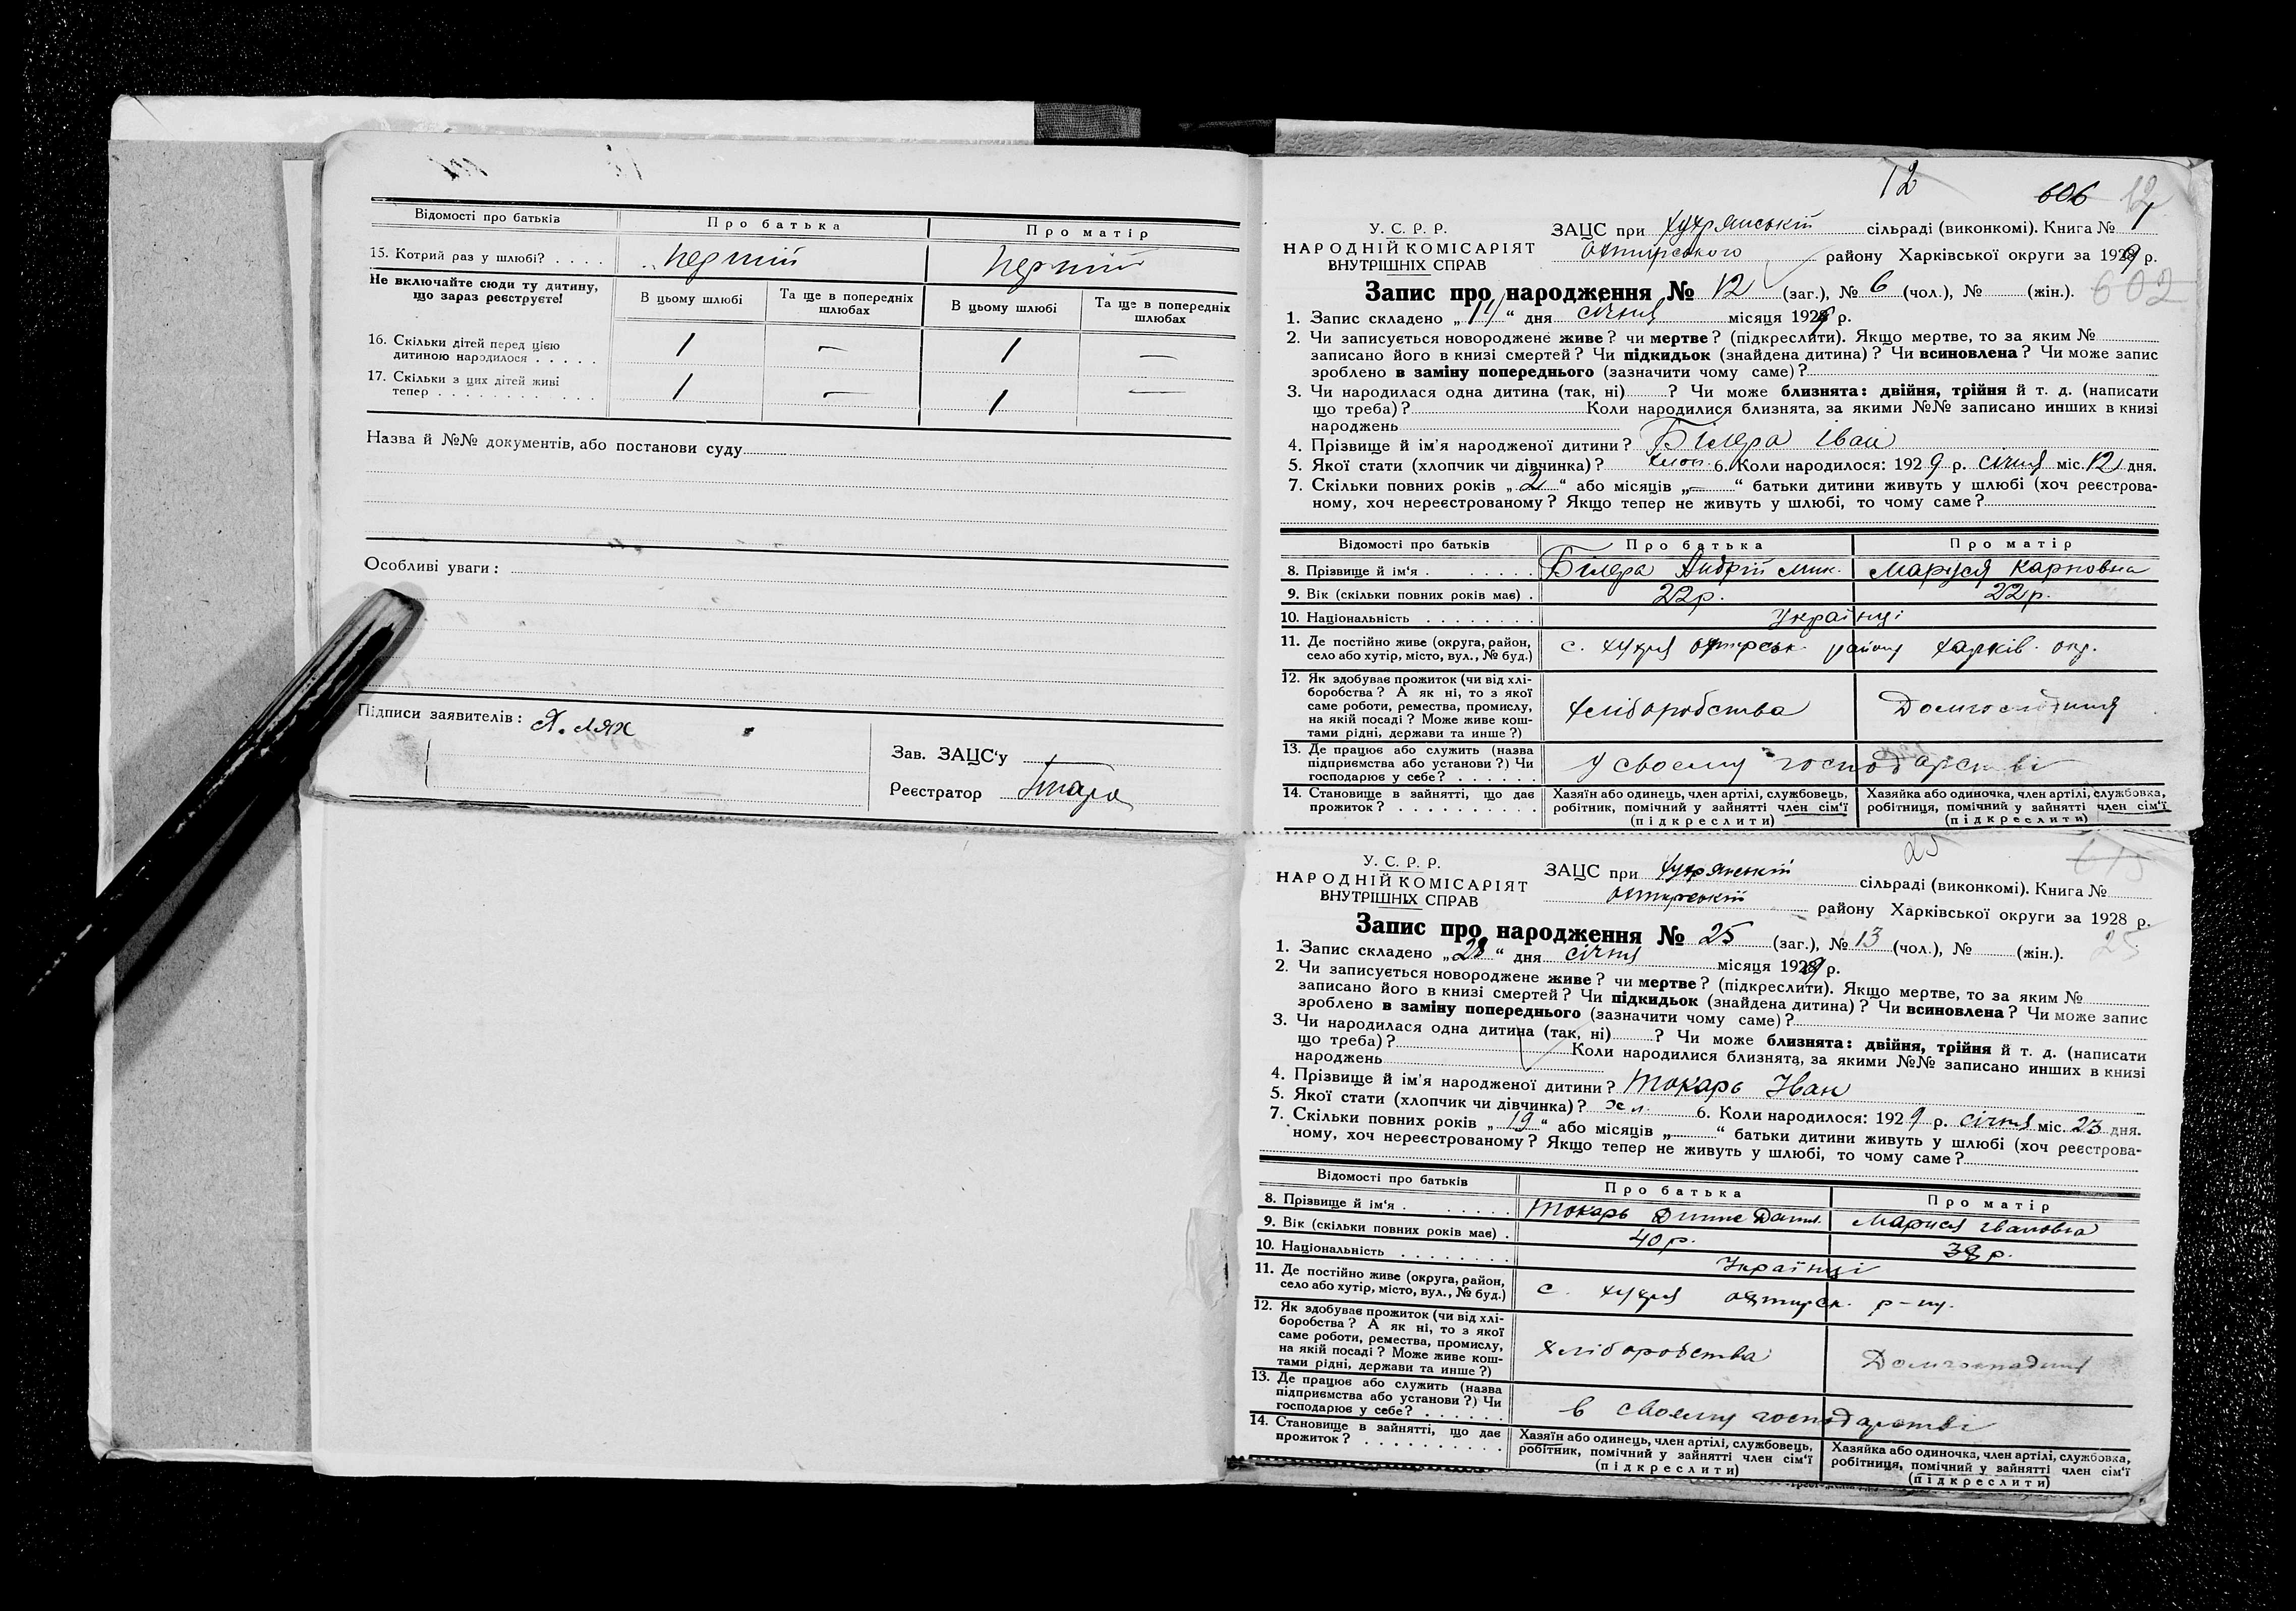 Відомості про батьків
Про батька
Про матір
15. Котрий раз у шлюбі? . . . .
перший
перший
Не включайте сюди ту дитину,
що зараз реєструєте!
В цьому шлюбі
Та ще в попередніх
шлюбах
В цьому шлюбі
Та ще в попередніх
шлюбах
16. Скільки дітей перед цією
дитиною народилося . . . . .
1
—
1
—
17. Скільки з цих дітей живі
тепер . . . . . . . . . . . .
1
—
1
—
Назва й №№ документів, або постанови суду
Особливі уваги:
Підписи заявителів: Я. Лях
Зав. ЗАЦС'у
Реєстратор
12
606 12
У. С. Р. Р.
НАРОДНІЙ КОМІСАРІЯТ
ВНУТРІШНІХ СПРАВ
ЗАЦС при Хухрянській сільраді (виконкомі). Книга № 1
Охтирського району Харківської округи за 1929 р.
602
Запис про народження № 12 (заг.), № 6 (чол.), № (жін.).
1. Запис складено „14“ дня січня місяця 1929 р.
2. Чи записується новороджене живе? чи мертве? (підкреслити). Якщо мертве, то за яким №
записано його в книзі смертей? Чи підкидьок (знайдена дитина)? Чи всиновлена? Чи може запис
зроблено в заміну попереднього (зазначити чому саме)?
3. Чи народилася одна дитина (так, ні) ? Чи може близнята: двійня, трійня й т. д. (написати
що треба)? Коли народилися близнята, за якими №№ записано инших в книзі
народжень
4. Прізвище й ім'я народженої дитини? Білера Іван
5. Якої стати (хлопчик чи дівчинка)? хлоп. 6. Коли народилося: 1929 р. січня міс. 12 дня.
7. Скільки повних років „2“ або місяців „—“ батьки дитини живуть у шлюбі (хоч реєстрова-
ному, хоч нереєстрованому? Якщо тепер не живуть у шлюбі, то чому саме?
Відомості про батьків
Про батька
Про матір
8. Прізвище й ім'я . . . . . . .
Білера Андрій Мик.
Маруся Карповна
9. Вік (скільки повних років має) .
22 р.
22 р.
10. Національність . . . . . . . .
Українці
11. Де постійно живе (округа, район,
село або хутір, місто, вул., № буд.)
с. Хухря Охтирськ. району Харків. окр.
12. Як здобуває прожиток (чи від хлі-
боробства? А як ні, то з якої
саме роботи, ремества, промислу,
на якій посаді? Може живе кош-
тами рідні, держави та инше?)
Хліборобства
Домгосподиня
13. Де працює або служить (назва
підприємства або установи?) Чи
господарює у себе? . . . . . .
У своему господарстві
14. Становище в зайнятті, що дає
прожиток? . . . . . . . . . .
Хазяїн або одинець, член артілі, службовець,
робітник, помічний у зайнятті член сім'ї
(підкреслити)
Хазяйка або одиночка, член артілі, службовка,
робітниця, помічний у зайнятті член сім'ї
(підкреслити)
25
У. С. Р. Р.
НАРОДНІЙ КОМІСАРІЯТ
ВНУТРІШНІХ СПРАВ
ЗАЦС при Хухрянській сільраді (виконкомі). Книга №
Охтирській району Харківської округи за 1928 р.
25
Запис про народження № 25 (заг.), № 13 (чол.), № (жін.).
1. Запис складено „28“ дня січня місяця 1929 р.
2. Чи записується новороджене живе? чи мертве? (підкреслити). Якщо мертве, то за яким №
записано його в книзі смертей? Чи підкидьок (знайдена дитина)? Чи всиновлена? Чи може запис
зроблено в заміну попереднього (зазначити чому саме)?
3. Чи народилася одна дитина (так, ні) ? Чи може близнята: двійня, трійня й т. д. (написати
що треба)? Коли народилися близнята, за якими №№ записано инших в книзі
народжень
4. Прізвище й ім'я народженої дитини? Токарь Іван
5. Якої стати (хлопчик чи дівчинка)? хл. 6. Коли народилося: 1929 р. січня міс. 23 дня.
7. Скільки повних років „19“ або місяців „ “ батьки дитини живуть у шлюбі (хоч реєстрова-
ному, хоч нереєстрованому? Якщо тепер не живуть у шлюбі, то чому саме?
Відомості про батьків
Про батька
Про матір
8. Прізвище й ім'я . . . . . . .
Токарь
Маруся Івановна
9. Вік (скільки повних років має) .
40 р.
38 р.
10. Національність . . . . . . . .
Українці
11. Де постійно живе (округа, район,
село або хутір, місто, вул., № буд.)
с. Хухря Охтирск. р-ну.
12. Як здобуває прожиток (чи від хлі-
боробства? А як ні, то з якої
саме роботи, ремества, промислу,
на якій посаді? Може живе кош-
тами рідні, держави та инше?)
Хліборобства
Домгосподиня
13. Де працює або служить (назва
підприємства або установи?) Чи
господарює у себе? . . . . . .
в своєму господарстві
14. Становище в зайнятті, що дає
прожиток? . . . . . . . . . .
Хазяїн або одинець, член артілі, службовець,
робітник, помічний у зайнятті член сім'ї
(підкреслити)
Хазяйка або одиночка, член артілі, службовка,
робітниця, помічний у зайнятті член сім'ї
(підкреслити)